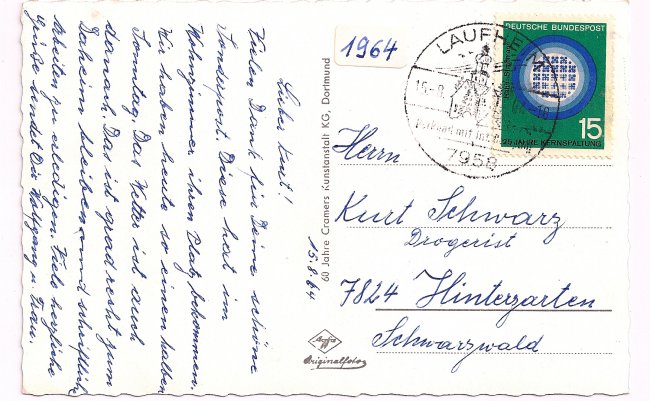 Lieber Kurt!
Vielen Dank für Deine schöne
Sonderpost. Diese hat im
Wohnzimmer ihren Platz bekommen.
Wir haben heute so einen halben
Sonntag. Das Wetter ist auch
danach. Das ist grad recht zum
Daheim bleiben und schriftliche
Arbeiten zu erledigen. Viele herzliche
Grüße sendet Dir Wolfgang u. Frau.
1964
15.8.64
60 Jahre Cramers Kunstanstalt KG, Dortmund
Agfa
Originalfoto
LAUPHEIM
15.-8.
7958
DEUTSCHE BUNDESPOST
15
25 JAHRE KERNSPALTUNG
Herrn
Kurt Schwarz
Drogerist
7824 Hinterzarten
Schwarzwald